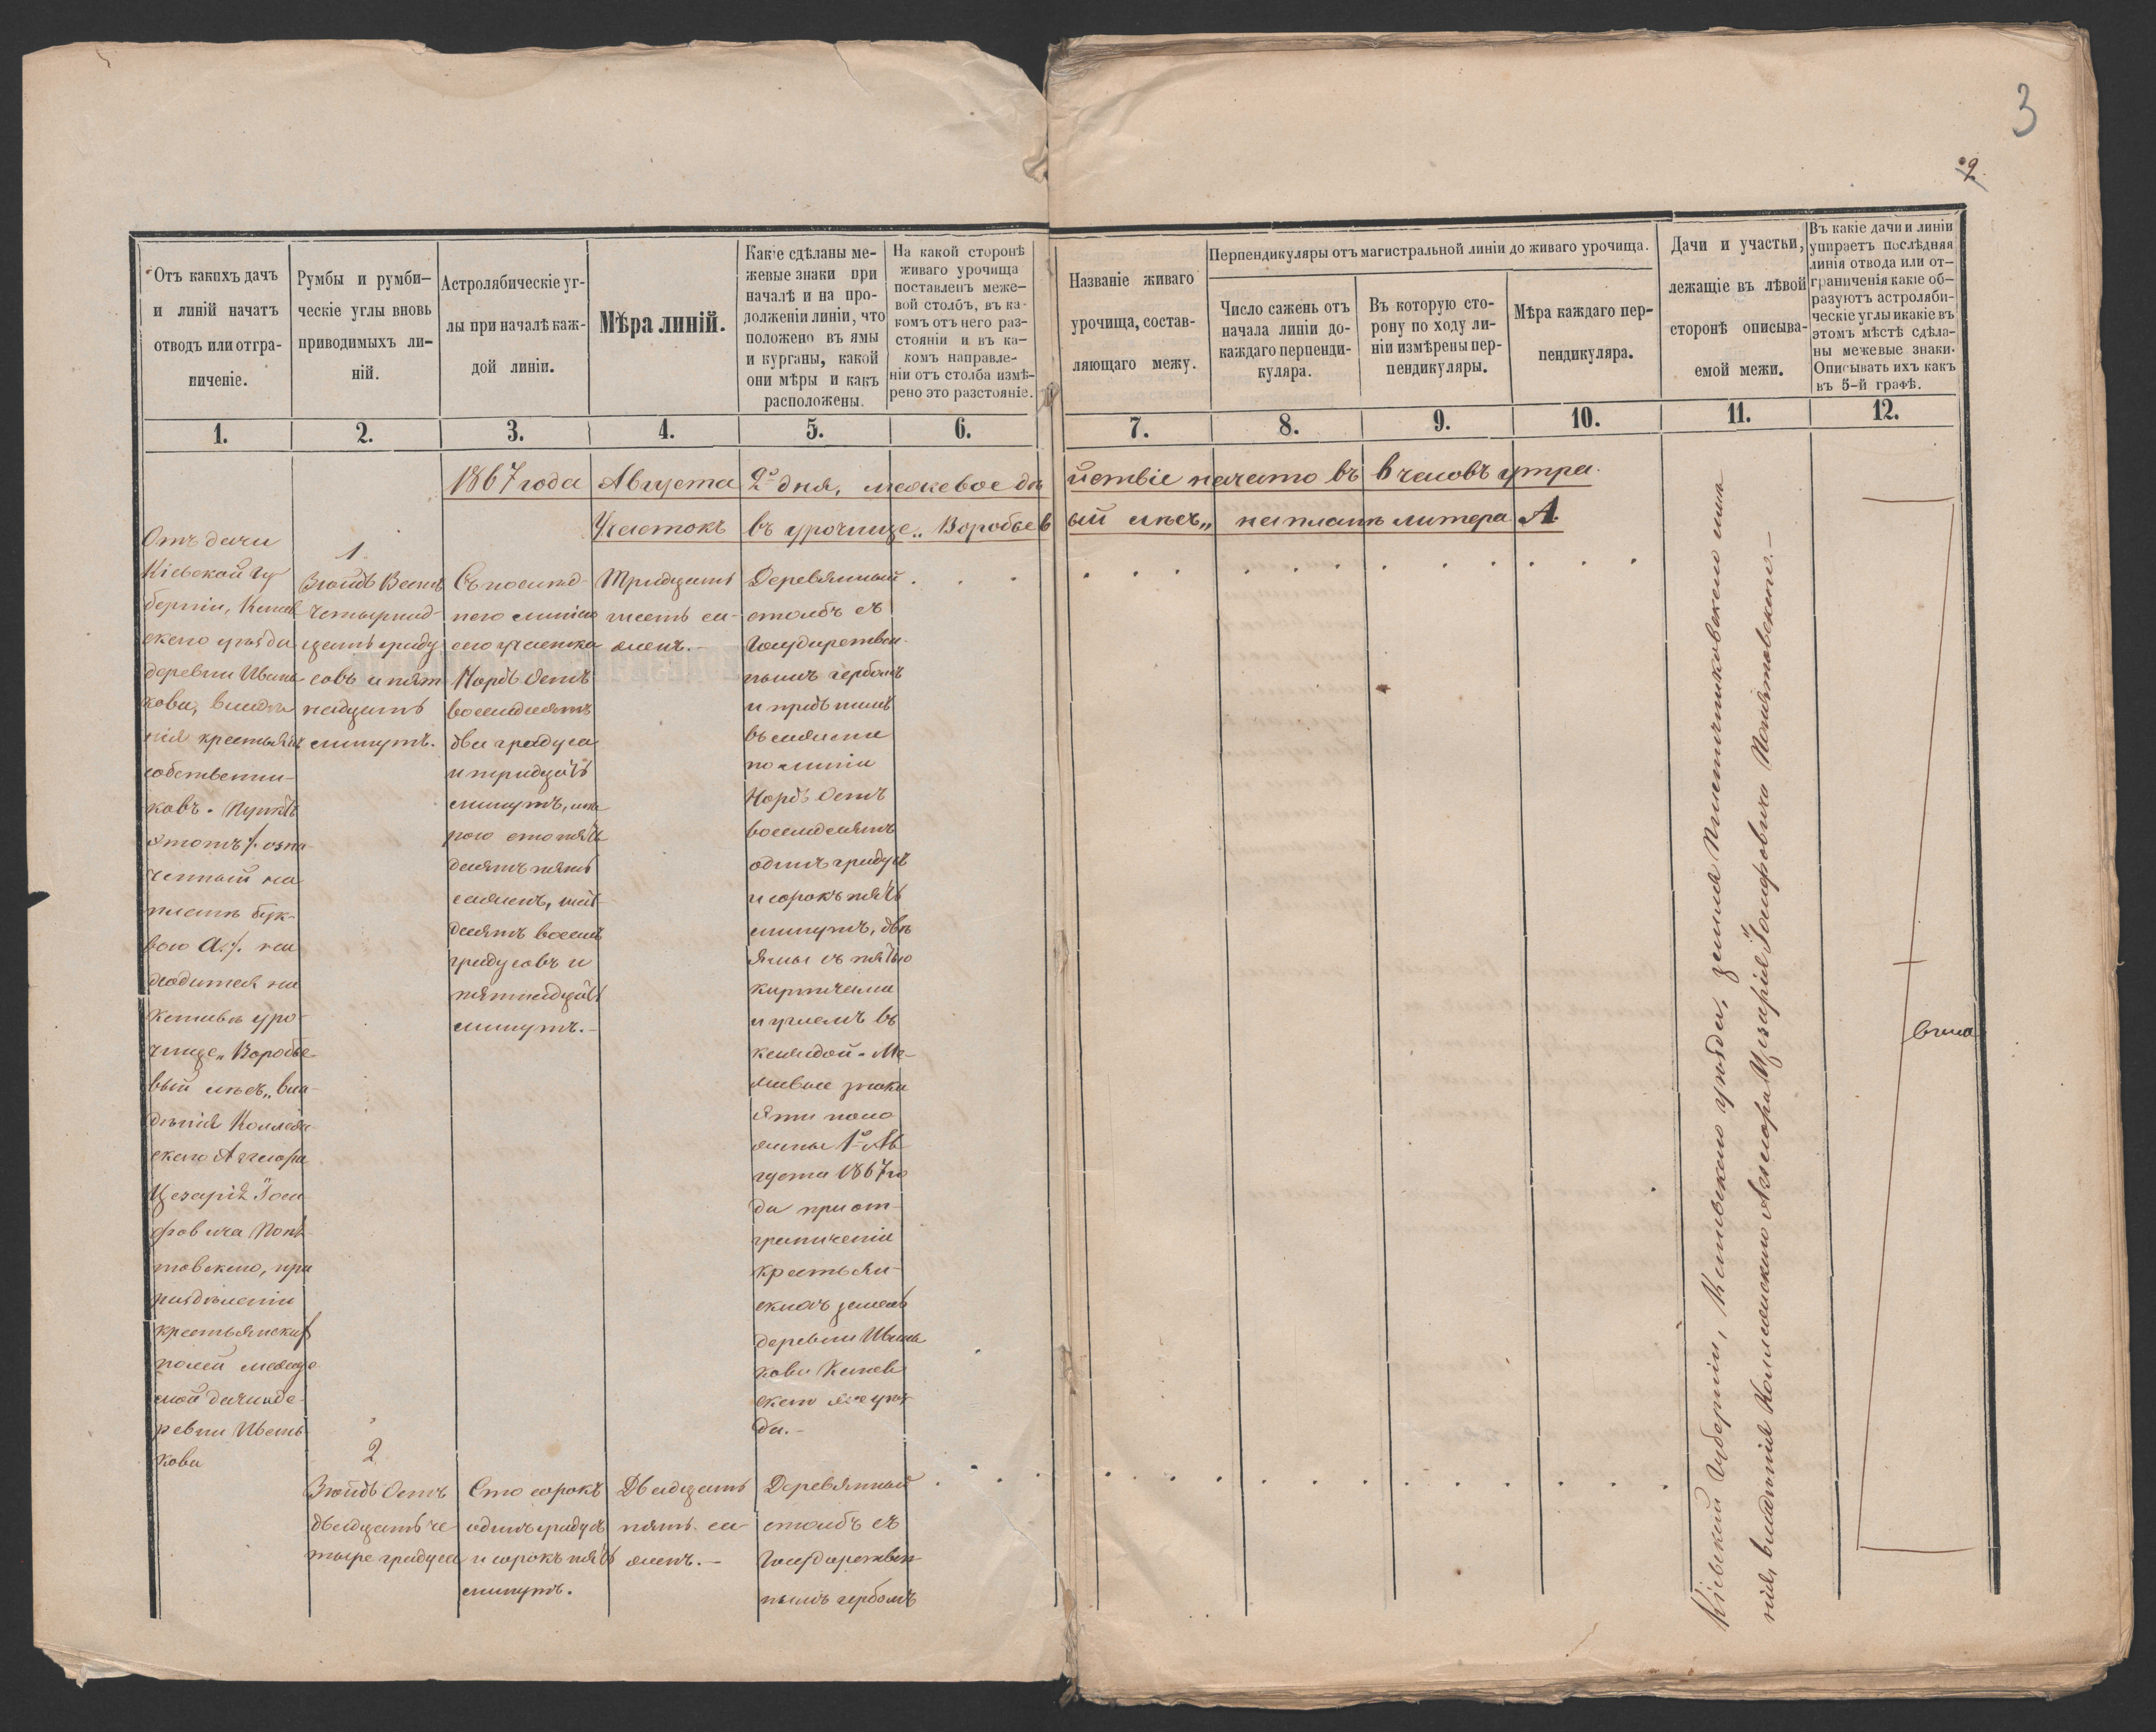 3
2.
Отъ какихъ дачъ
и линій начатъ
отводъ или отгра-
ниченіе.
Румбы и румби-
ческіе углы вновь
приводимыхъ ли-
ній.
Астролябическіе уг-
лы при началѣ каж-
дой линіи.
Мѣра линій.
Какіе сдѣланы ме-
жевые знаки при
началѣ и на про-
долженіи линіи, что
положено въ ямы
и курганы, какой
они мѣры и какъ
расположены.
На какой сторонѣ
живаго урочища
поставленъ меже-
вой столбъ, въ ка-
комъ отъ него раз-
стояніи и въ ка-
комъ направле-
ніи отъ столба измѣ-
рено это разстояніе.
Названіе живаго
урочища, состав-
ляющаго межу.
Перпендикуляры отъ магистральной линіи до живаго урочища.
Число сажень отъ
начала линіи до-
каждаго перпенди-
куляра.
Въ которую сто-
рону по ходу ли-
ніи измѣрены пер-
пендикуляры.
Мѣра каждаго пер-
пендикуляра.
Дачи и участки,
лежащіе въ лѣвой
сторонѣ описыва-
емой межи.
Въ какіе дачи и линіи
упираетъ послѣдняя
линія отвода или от-
граниченія какіе об-
разуютъ астроляби-
ческіе углы и какіе въ
этомъ мѣстѣ сдѣла-
ны межевые знаки.
Описывать ихъ какъ
въ 5-й графѣ.
1. 2. 3. 4. 5. 6. 7. 8. 9. 10. 11. 12.
1867 года Августа 2го дня, межевое дѣйствіе начато въ 6 часовъ утра.
Участокъ въ урочищѣ „Воробьевый лѣсъ„ на планѣ литера А.
Отъ дачи
Кіевской Гу
берніи, Каневскаго уѣзда
деревни Ивань
кова, владѣ
нія крестьянъ
собственни-
ковъ. Пунктъ
этотъ /. озна
ченный на
планѣ бук-
вою а./. на
ходится на
уро-
чища „Воробье-
вый лѣсъ„ вла-
дѣнія Коллеж-
скаго Ассесора
Цезарія Іоси
фовича Поня-
товскаго, при
раздѣленіи
крестьянских
полей между
сей дачи и де-
ревни Ивань
кова
1.
Зюйдъ Вестъ
четырнад-
цать граду
совъ и пят
надцать
минутъ.
Съ послѣд-
нею линіею
сего участка
Нордъ Остъ
восемдесятъ
два градуса
и тридцать
минутъ, мѣ
рою сто пять
десятъ пять
саженъ, шесть-
десятъ восемь
градусовъ и
пятнадцать
минутъ.-
Тридцать
шесть са-
женъ.-
Деревянный
столбъ съ
Государствен-
нымъ гербомъ
и предъ нимъ
въ сажени
по линіи
Нордъ Остъ
восемдесятъ
одинъ градусъ
и сорокъ пять
минутъ, двѣ
ямы съ пятью
кирпичами
и углемъ въ
каждой. Ме-
жевые знаки
эти поло
жены 1го Ав
густа 1867 го
да при от-
граниченіи
крестьян-
скихъ земель
деревни Ивань
кова Канев
скаго же уѣз
да.-
2
Зюйдъ Остъ
двадцать че
тыре градуса
Сто сорокъ
одинъ градусъ
и сорокъ пять
минутъ.
Двадцать
пять са
женъ.-
Деревянный
столбъ съ
Государствен
нымъ гербомъ
Кіевской Губерніи, Каневскаго уѣзда, земля
нія, владѣнія Коллежскаго Ассесора Цезарія Іосифовича Понятовскаго.-